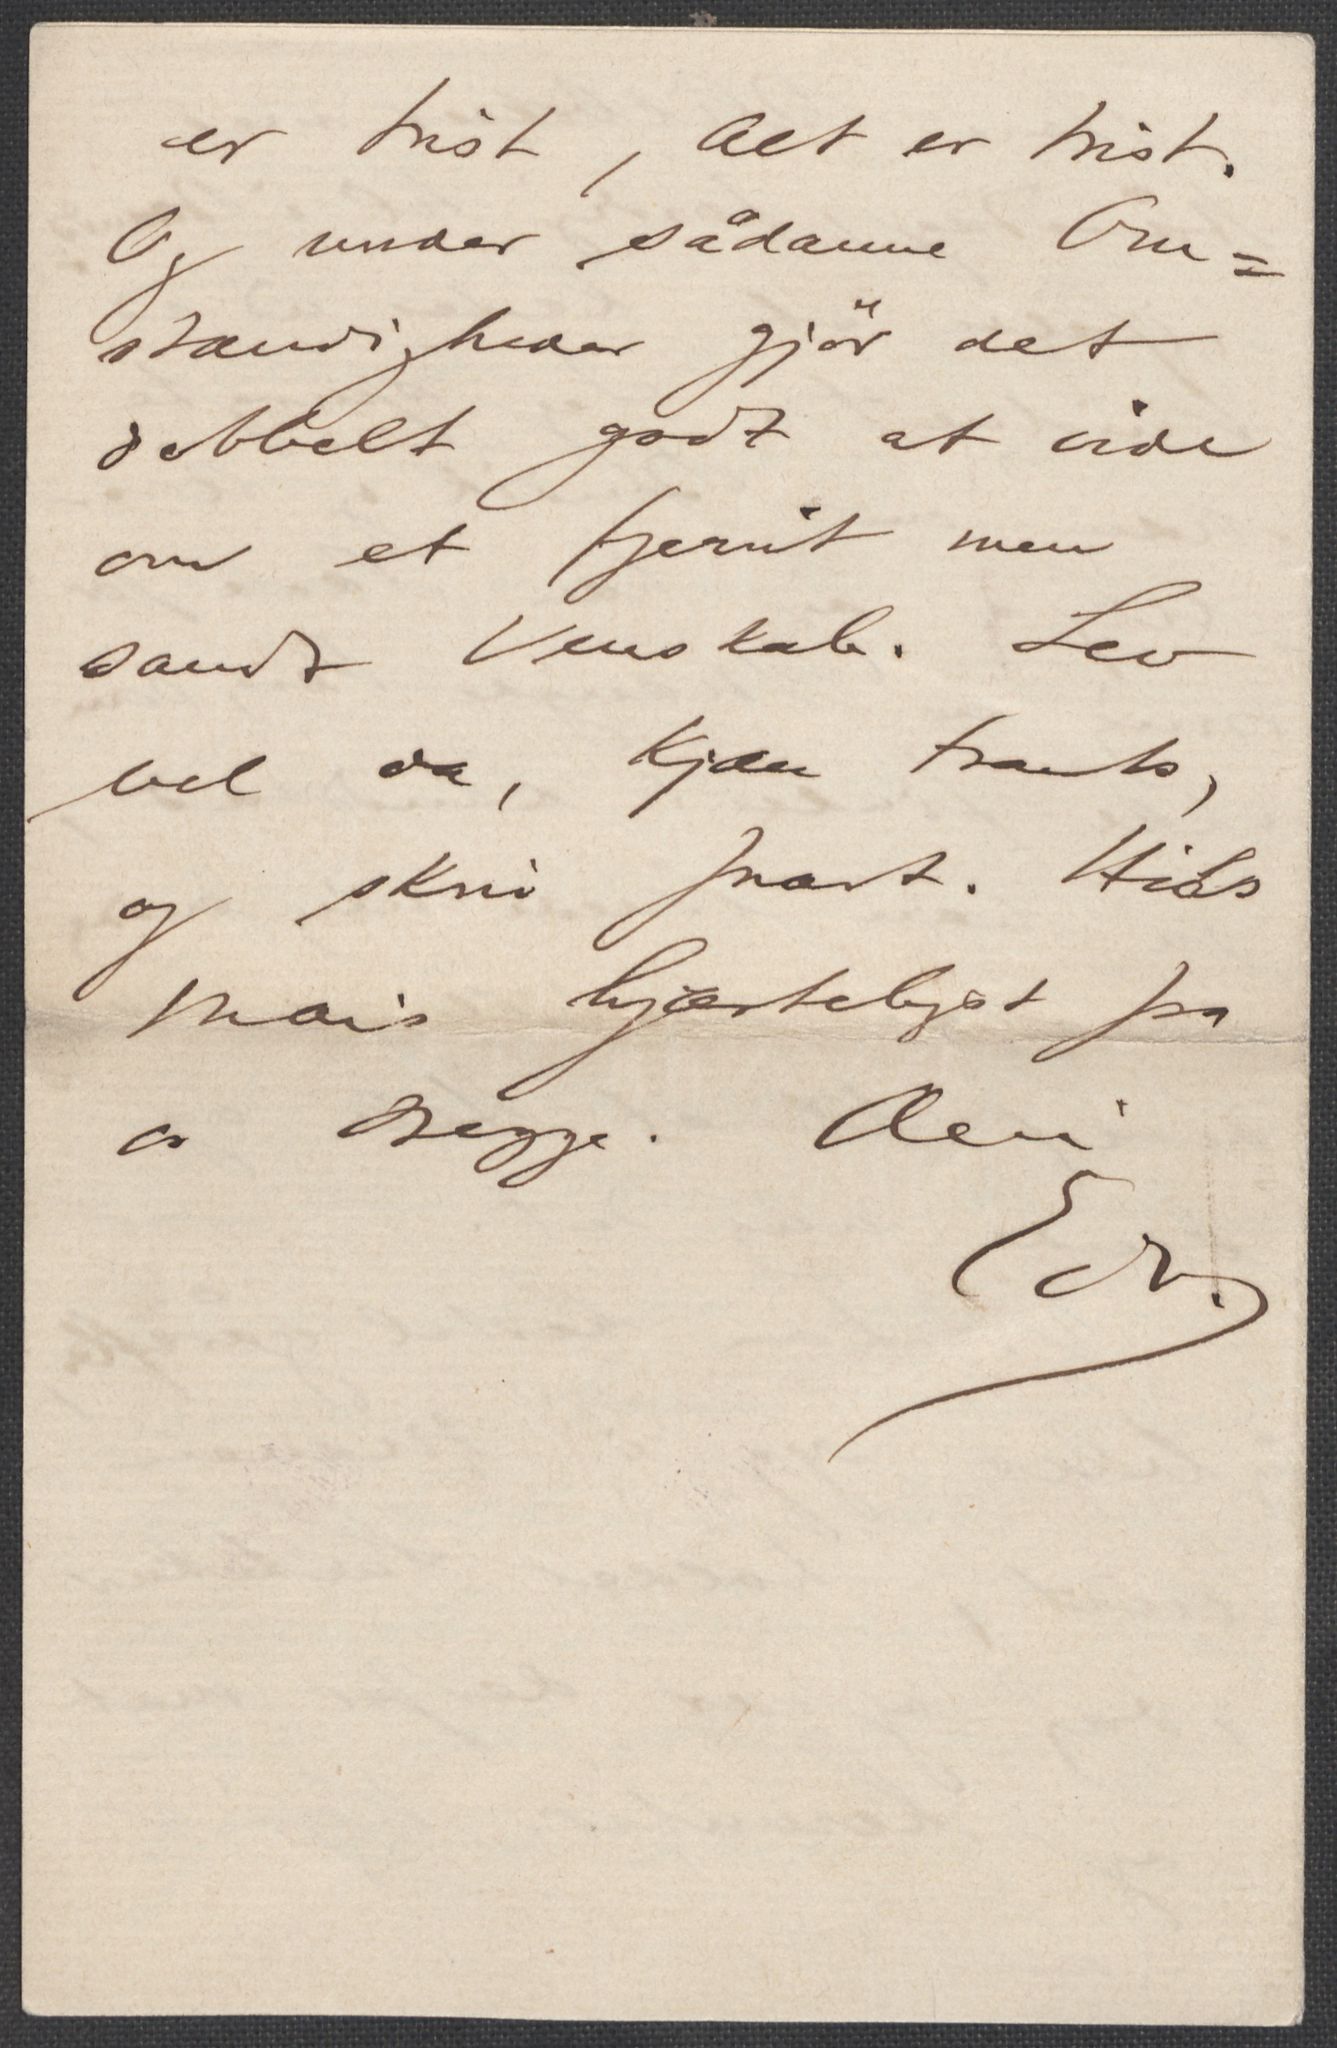 er trist, Alt er trist.
Og under sådanne Om=
stændigheder gjör det
dobbelt godt at vide
om et fjernt men
sandt Venskab. Lev
vel da, kjære Frants,
og skriv snart. Hils
Marie hjærteligst fra
os begge. Din
Edv.